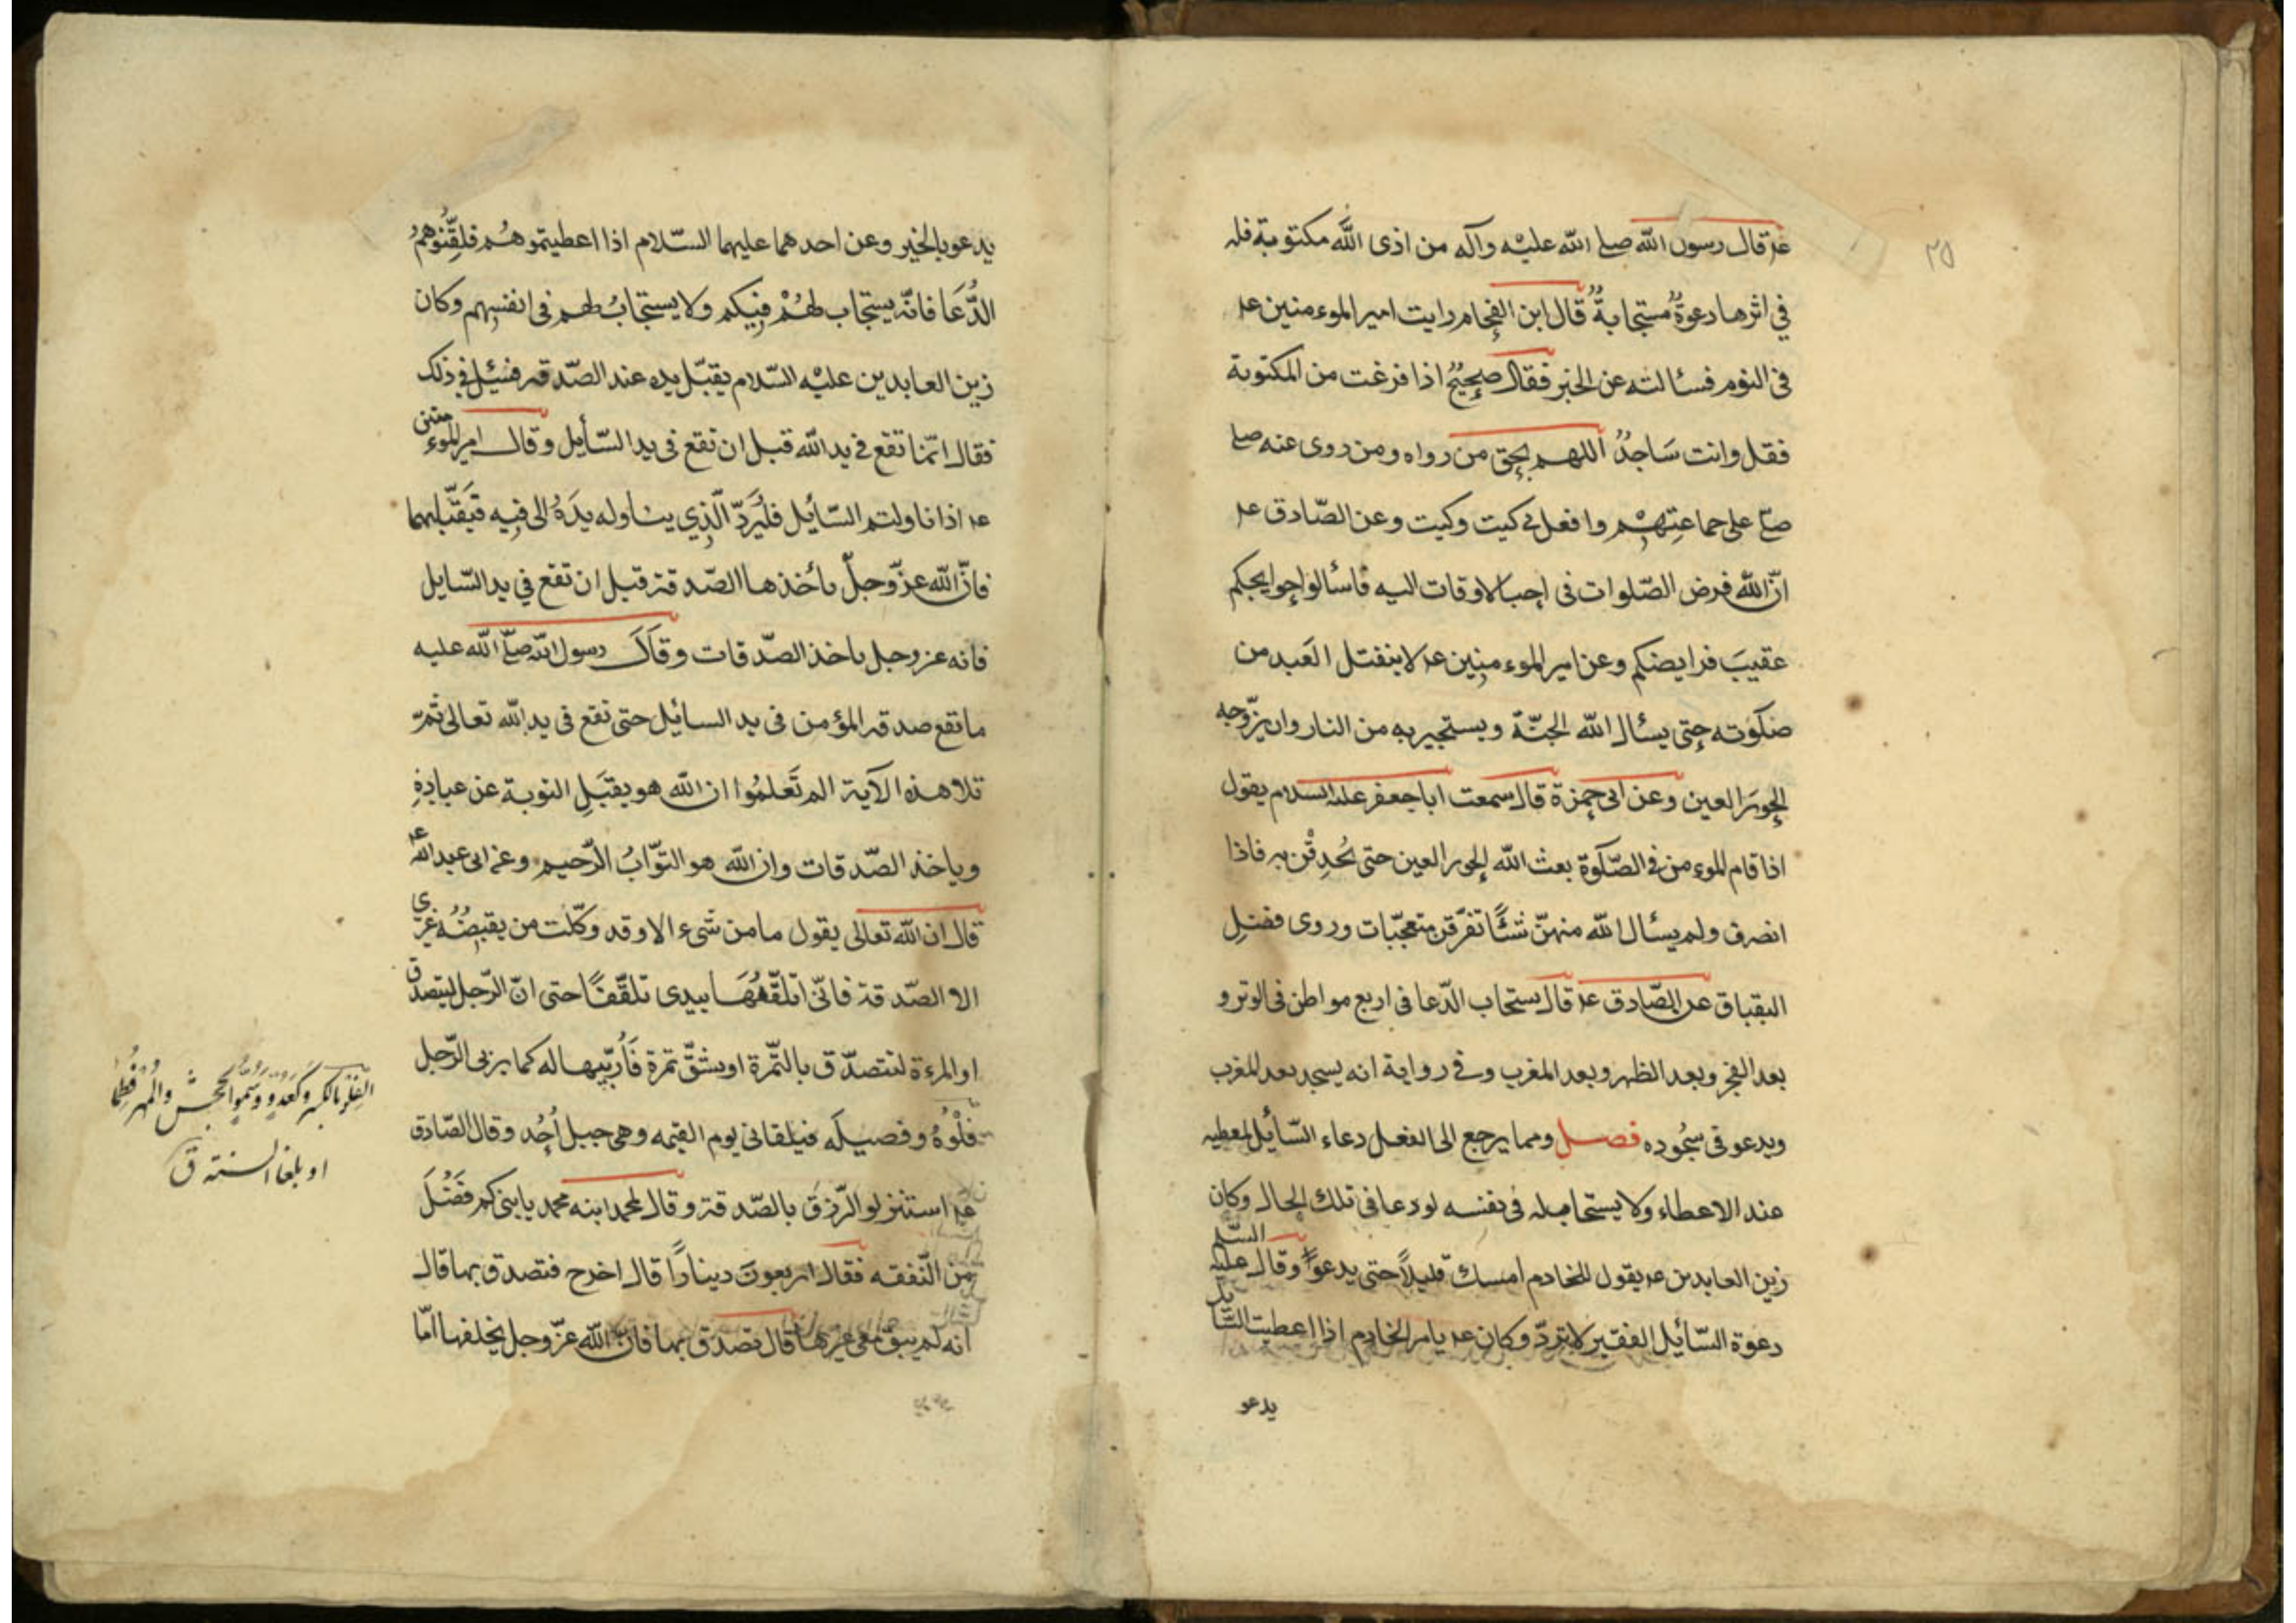 ٢٥
عم قال رسول الله صلى الله عليه وآله من ادى الله مكتوبة فله
في اثرها دعوةٌ مستجابةٌ قال ابن الفحام رايت امير الموءمنين عم
في النوم فسئالته عن الخبر فقال صحيحٌ اذا فرغت من المكتوبة
فقل وانت سَاجدٌ اللهم بحق من رواه ومن روى عنه صل
صلّ على جماعتِهِم وافعل بي كيت وكيت وعن الصّادق عم
انّ الله فرض الصّلوات في احب الاوقات اليه فاسئالوا حوايجكم
عقيبَ فرايضكم وعن امير الموءمنين عم لا ينفتل العَبد من
صَلوته حتى يسئال الله الجنّة ويستجير به من النار وان يزّوجه
الحورَ العين وعن ابى حمزة قال سمعت ابا جعفر عليه السلام يقول
اذا قام الموءمن في الصّلوة بعث الله الحور العين حتى يُحدِقْن به فاذا
انصرف ولم يسئال الله منهنّ شئًا تفرّقن متعجّبات وروى فضل
البقباق عن الصّادق عم قال يستجاب الدّعا في اربع مواطن في الوتر و
بعد الفجر وبعد الظهر وبعد المغرب وفي رواية انه يسجد بعد المغرب
ويدعو في سجُوده فصل ومما يرجع الى الفعل دعاء السّائل لمعطيه
عند الاعطاء ولا يستجاب له في نفسه لو دعا في تلك الحال وكان
زين العابدين عم يقول للخادم امسك قليلاً حتى يدعوا وقال عليه السلم
دعوة السّائل الفقير لا تردّ وكان عم يامر الخادم اذا اعطيت السّايل
يدعو
يدعو بالخير وعن احدهما عليهما السّلام اذا اعطيتموهُم فلقِّنُوهم
الدُّعَا فانّه يستجاب لهُمْ فِيكم ولا يستجابُ لهم في انفسِهم وكان
زين العابدين عليْه السّلام يقبّل يده عند الصّدقه فسئِل في ذلك
فقال انّما تقع في يد الله قبل ان تقع في يد السّأيل وقال امير الموءمنين
عم اذا ناولتم السّائِل فليُرَدّ الّذِي يناوله يدَهُ الى فِيه فيَقبّلها
فانّ الله عزّ وجلّ يأخذها الصّدقة قبل ان تقع في يد السّايل
فانه عز وجل ياخذ الصّدقات وقَالَ رسول الله صلّى الله عليه
ما تقع صدقه المؤمن في يد السايِل حتى تقع في يد الله تعالى ثمّ
تلا هذه الآية الم تَعلمُوا ان الله هو يقبَلِ التوبة عن عبادِهِ
وياخذ الصّدقات وان الله هو التوّابُ الرّحيم وعن ابى عبد الله عم
قال ان الله تعالى يقول ما من شَىء الا وقد وكّلت من يقبِضُهُ غيرى
الا الصّدقة فانّى اتلقّفُهَا بيدى تلقّفًا حتى انّ الرّجل ليتصدق
او المرءة لتتصدّق بالتّمرة او بشقّ تمرة فَأُربّيها له كما يربى الرّجل
فَلْوهُ وفصيلَه فيلقانى يوم القيمه وهى جبل اُحُد وقال الصّادق
عم استنزلو الرّزق بالصّدقة وقال لمحمد ابنه محمد يا بنى كم فَضُلَ
من النّفقه فقال اربعونَ دينارًا قال اخرج فتصدق بها قال
انه لم يبق معى غيرها قال تصدق بها فانّ الله عزّ وجل يخلفها امّا
الفِلْو بالكسر وكعَدُوٍّ وسُمُوٍّ الجحش والمُهر فُطِما
او بلغا السنة ق